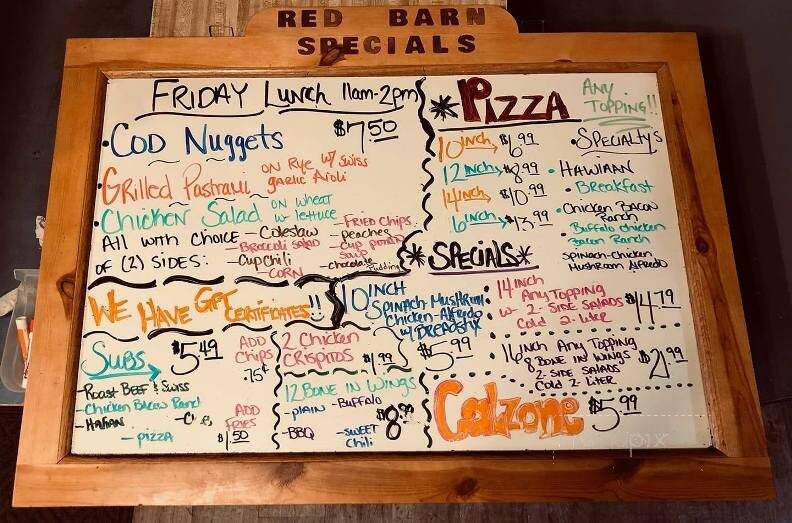 RED BARN
SPECIALS
FRIDAY Lunch 11am-2pm
• COD NUGGETS $7.50
• Grilled Pastrami ON Rye w/ Swiss
garlic Aioli
• Chicken Salad ON wheat
w- lettuce
All with choice
OF (2) SIDES:
- Coleslaw
- Broccoli salad
- Cup chili
- CORN
- FRIED Chips
- peaches
- Cup potato
Soup
- chocolate Pudding
WE HAVE GIFT
CERTIFICATES!!
Subs $5.49
ADD
Chips
.75¢
- Roast Beef & Swiss
- Chicken Bacon Ranch
- Italian
- PIZZA
ADD
FRIES
$1.50
2 Chicken
CRISPITOS
12 BONE IN WINGS
- PLAIN - Buffalo
- BBQ - SWEET
Chili
*PIZZA ANY
TOPPING!!
10 inch → $6.99
12 inch → $8.99
14 inch → $10.99
$13.99
• SPECIALTY'S
• HAWIIAN
• Breakfast
• Chicken BACON
Ranch
• Buffalo chicken
Bacon Ranch
SPINACH-Chicken
MUSHROOM Alfredo
*SPECIALS*
10 INCH
SPINACH-MUSHROOM
Chicken-Alfredo
w/ BREADSTIX
$5.99
14 inch
Any TOPPING
w- 2-SIDE SALADS
Cold 2-Liter
16 inch Any TOPPING
8 BONE IN WINGS
2-SIDE SALADS
Cold 2 LITER
Calzone $5.99